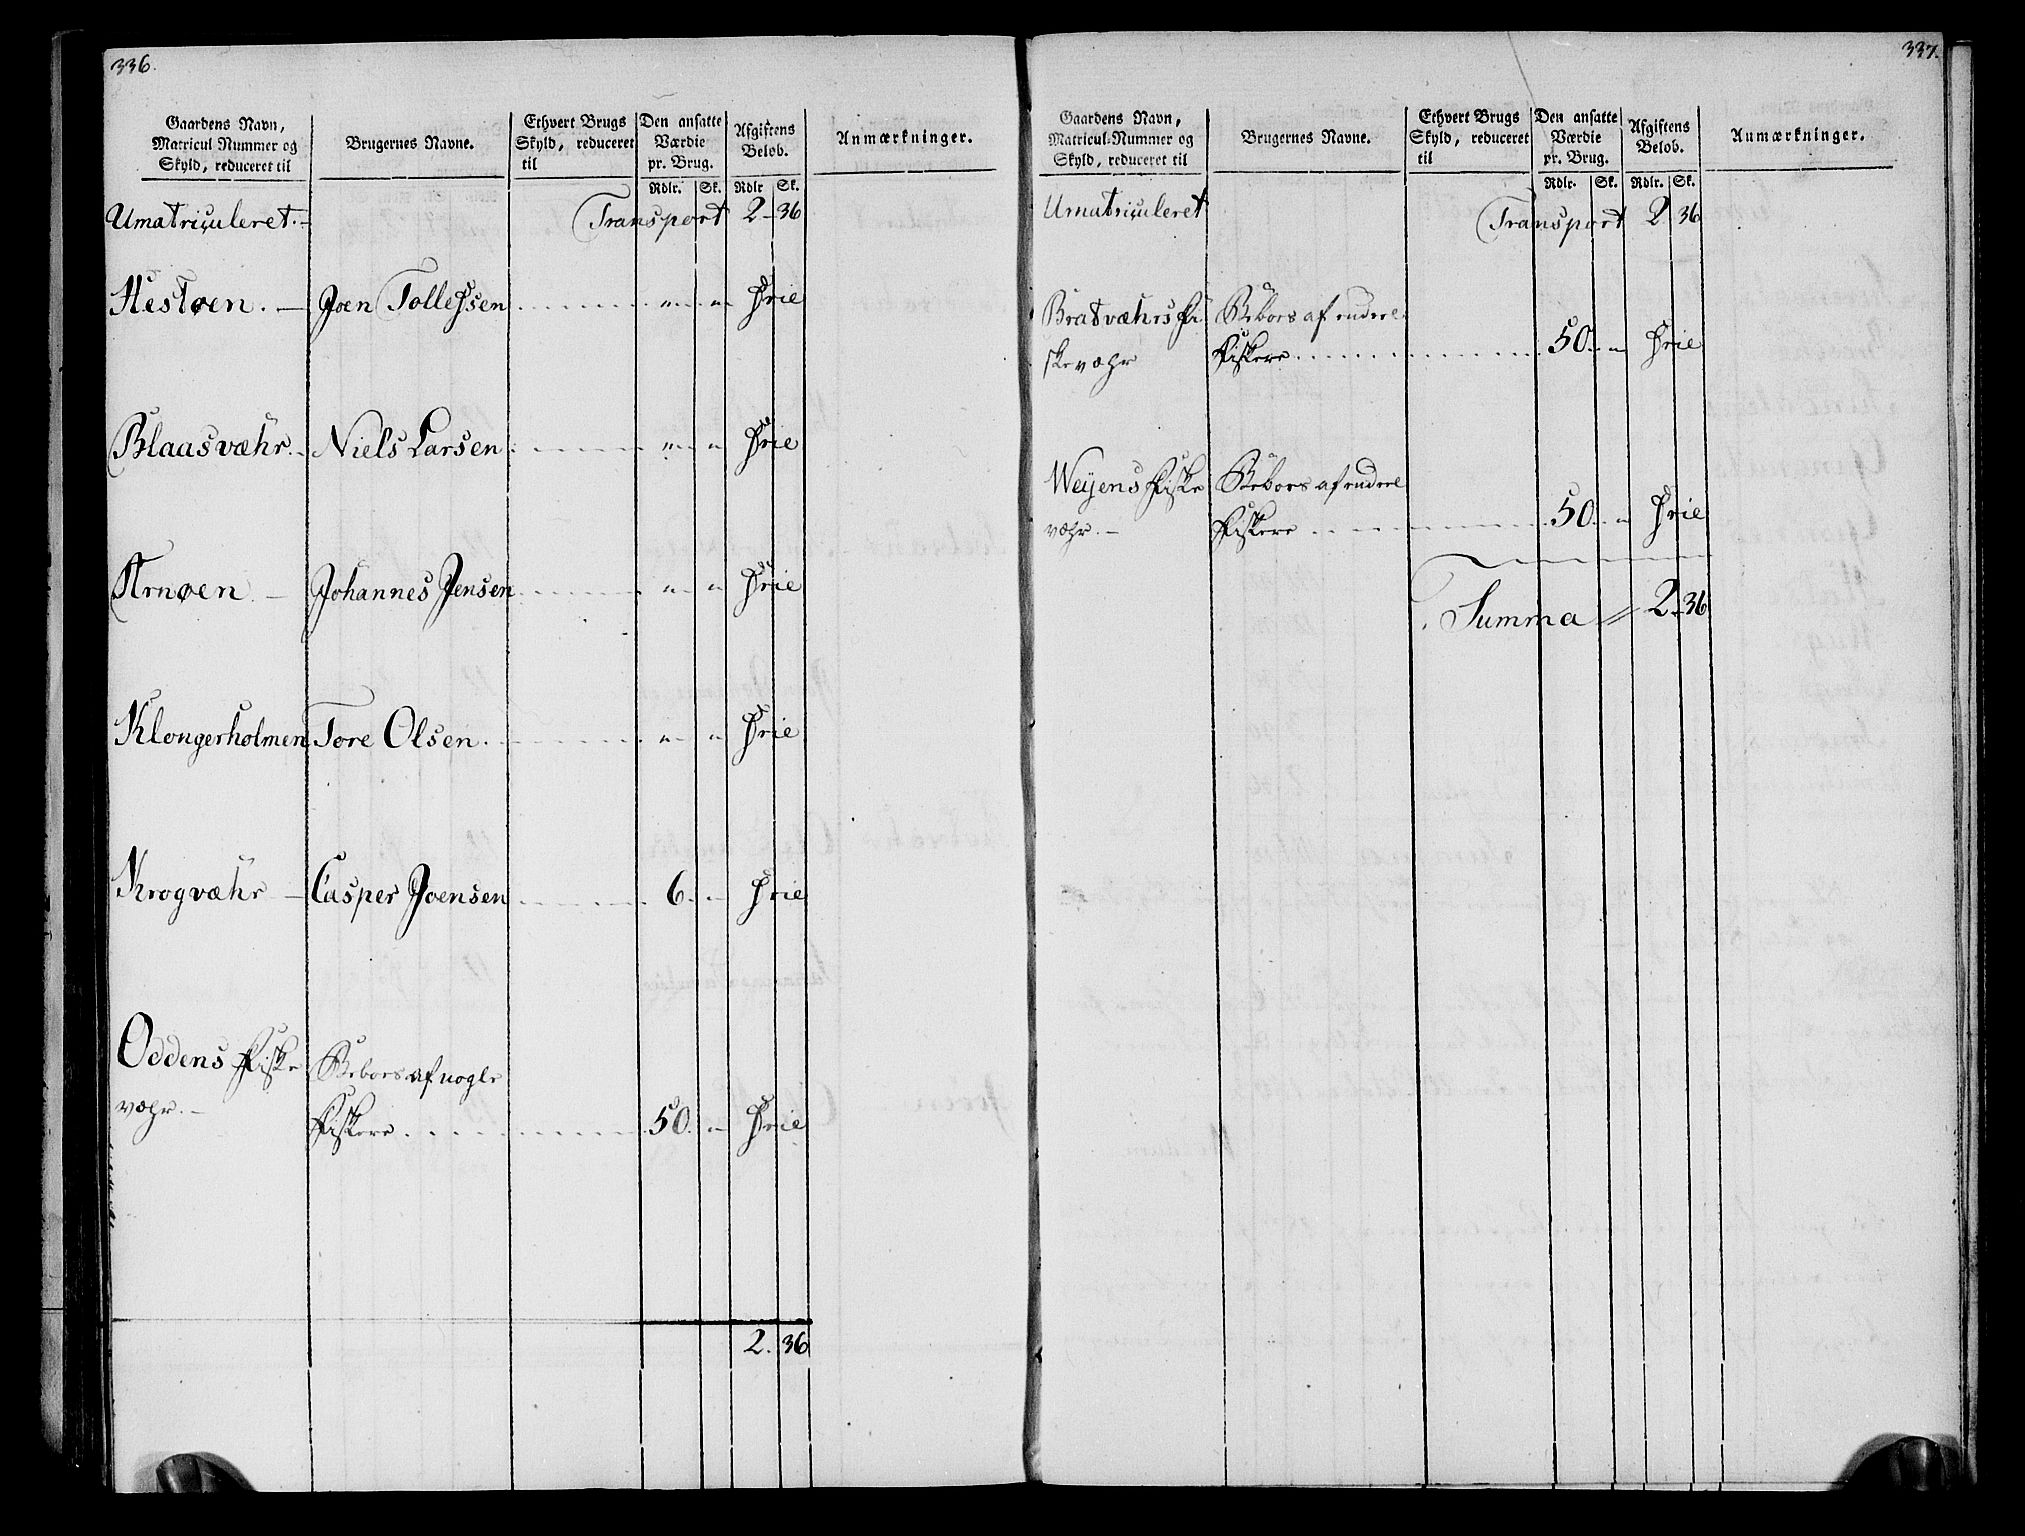 336.
Gaardens Navn, Matricul Nummer og Skyld, reduceret til
Brugernes Navne.
Ethvert Brugs Skyld, reduceret til
Den ansatte Værdie pr. Brug.
Afgiftens Beløb.
Anmærkninger.
Rdlr. Sk. Rdlr Sk.
Umatriculeret.- Transport 2-36
Hestøen. - Joen Tollefsen " " frie
Blaasvæhr. - Niels Larsen " " frie
Arnøen - Johannes Jensen " " frie
Klongerholmen Tore Olsen. " " frie
Krogvæhr - Casper Joensen 6. " frie
Oddens Fiske Beboes af nogle
væhr. - Fiskere 50. " frie
2. 36
337.
Gaardens Navn, Matricul-Nummer og Skyld, reduceret til
Brugernes Navne.
Ethvert Brugs Skyld, reduceret til
Den ansatte Værdie pr. Brug.
Afgiftens Beløb.
Anmærkninger.
Rdlr. Sk. Rdlr. Sk.
Umatriculeret Transport 2 36
Bratvæhrs Fi Beboes af endeel
skevæhr Fiskere 50. " frie
Weyens Fiske Beboes af endeel
væhr. - Fiskere 50. " frie
Summa 2-36